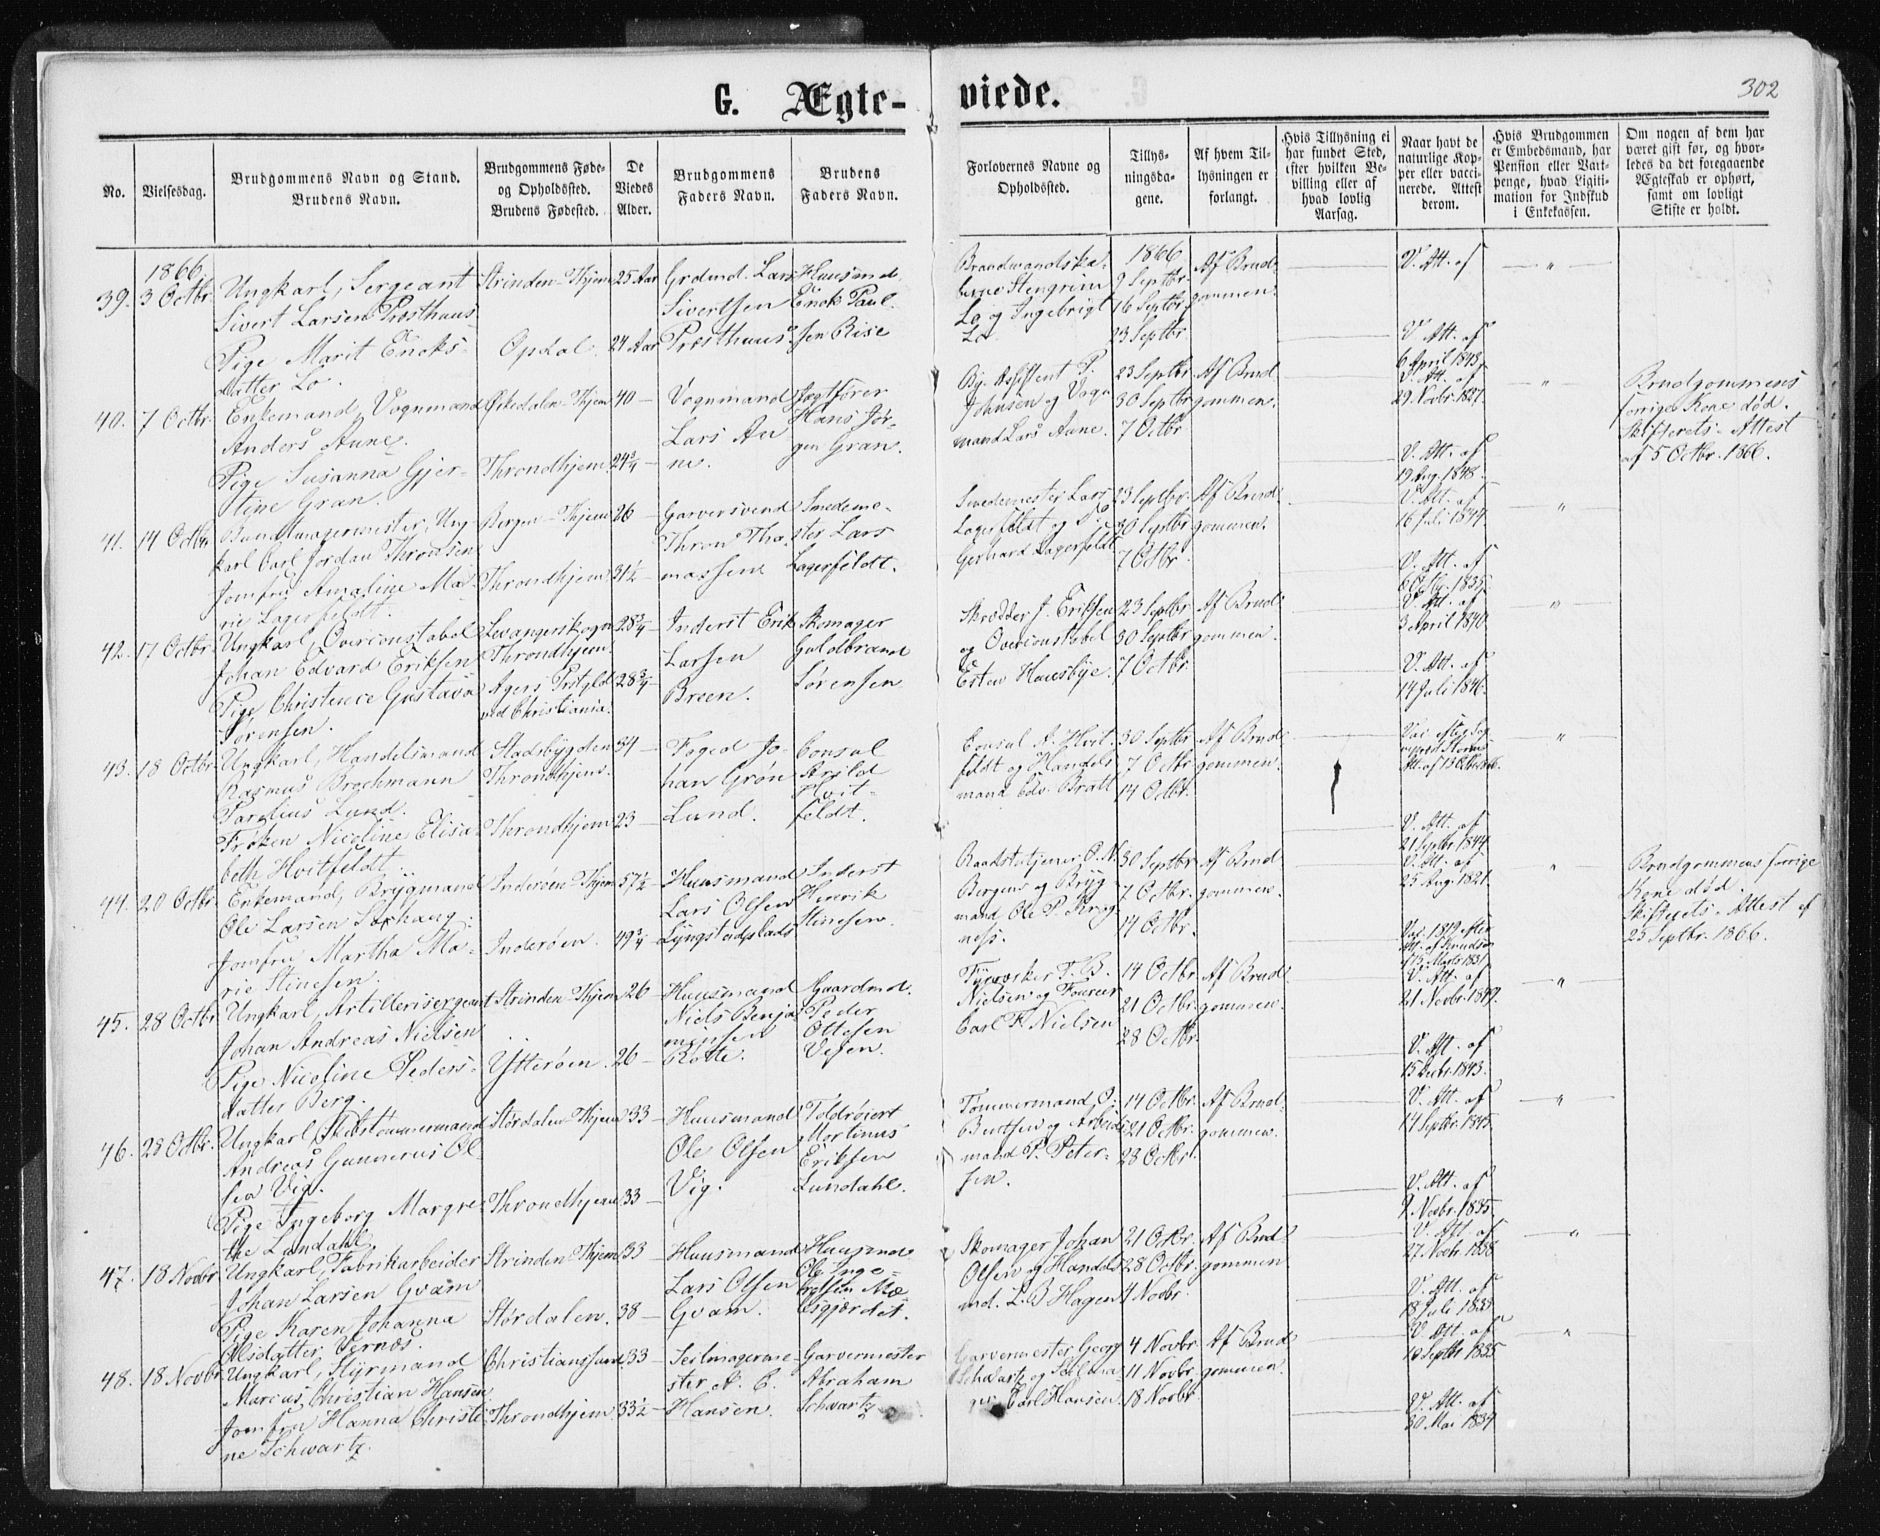 302
G. Ægte- viede.
No.
Vielsesdag.
Brudgommens Navn og Stand.
Brudens Navn.
Brudgommens Føde-
og Opholdssted.
Brudens Fødested.
De
Viedes
Alder.
Brudgommens
Faders Navn.
Brudens
Faders Navn.
Forlovernes Navne og
Opholdssted.
Tillys-
ningsda-
gene.
Af hvem Til-
lysningen er
forlangt.
Hvis Tillysning ei
har fundet Sted,
efter hvilken Be-
villing eller af
hvad lovlig
Aarsag.
Naar havt de
naturlige Kop-
per eller vacci-
nerede. Attest
derom.
Hvis Brudgommen
er Embedsmand, har
Pension eller Vart-
penge, hvad Ligiti-
mation for Indskud
i Enkekassen.
Om nogen af dem har
været gift før, og hvor-
ledes da det foregaaende
Ægteskab er ophørt,
samt om lovligt
Skifte er holdt.
1866
39. 3 Octbr.
Ungkarl, Sergeant
Sivert Larsen Præsthuus
Pige Marit Enoks-
datter Lo.
Strinden - Thjem
Opdal.
25 Aar
24 Aar
Grdmd. Lars
Sivertsen
Præsthuus
Huusmd.
Enok Paul-
sen Rise
Lo og Ingebrigt
Lo.
1866
9 Septbr.
16 Septbr.
23 Septbr.
Af Brud-
gommen.
V. Att. af
V. Att. af
6 April 1848.
40. 7 Octbr.
Enkemand, Vognmand
Anders Aune.
Pige Susanna Gjer-
stine Gran.
Ørkedalen - Thjem
Throndhjem
40 -
24 3/4 -
Vognmand
Lars Au
ne.
Jægtfører
Hans Jør-
gen Gran.
Johnsen og Vogn
mand Lars Aune.
23 Septbr.
30 Septbr.
7 Octbr.
Af Brud
gommen.
V. Att. af
29 Novbr. 1827.
V. Att. af
19 Aug. 1848.
Brudgommens
forrige Kone død.
Skifterets - Attest
af 5 Octbr. 1866.
41. 14 Octbr.
Bundtmagermester, Ung-
karl Carl Jordan Thronsen
Jomfru Amaline Ma-
rie Lagerfeldt.
Bergen - Thjem
Throndhjem
26 -
31 1/2 -
Garversvend
Thron Tho-
massen
Smedeme-
ster Lars
Lagerfeldt.
Smedemester Lars
Lagerfeldt og
Gerhard Lagerfeldt
23 Septbr.
30 Septbr.
7 Octbr.
Af Brud-
gommen.
V. Att. af
16 Juli 1844.
V. Att. af
6 Octbr. 1835.
42. 17 Octbr.
Ungkarl, Overconstabel
Johan Edvard Eriksen
Pige Christence Gustava
Sørensen.
Levangerskogn
Throndhjem.
Agers Præstgjld
ved Christiania.
28 3/4 -
28 3/4 -
Inderst Erik
Larsen
Breen.
Skomager
Guldbrand
Sørensen
Skrædder J. Eriksen
og Overconstabel
Esten Huusbye.
23 Septbr.
30 Septbr.
7 Octbr.
Af Brud-
gommen.
V. Att. af
3 April 1840.
V. Att. af
14 Juli 1846.
43. 18 Octbr.
Ungkarl, Handelsmand
Rasmus Brochmann
Parelius Lund.
Frøken Nicoline Elisa-
beth Hvitfeldt.
Stadsbygden
Throndhjem.
Throndhjem
34 -
23 -
Foged Jo-
han Grøn
Lund.
Consul
Arild
Hvit-
feldt.
Consul A. Hvit-
feldt og Handels-
mand Edv. Bratt
30 Septbr.
7 Octbr.
14 Octbr.
Af Brud-
gommen.
V. Att. af
21 Septbr. 1844.
44. 20 Octbr.
Enkemand, Brygmand
Ole Larsen
Jomfru Martha Ma-
rie Stinesen.
Inderøen - Thjem
Inderøen.
57 1/2 -
49 3/4 -
Huusmand
Lars Olsen
Lyngstadplads
Inderst
Henrik
Stinesen.
Raadstutjener O. N.
Bergens og Bryg
mand Ole P. Krog-
ness.
30 Septbr.
7 Octbr.
14 Octbr.
Af Brud
gommen.
V. Att. af
25 Aug. 1821.
Brudgommens forrige
Kone død.
Skifterets - Attest af
25 Septbr. 1866.
45. 28 Octbr.
Ungkarl, Artillerisergeant
Johan Andreas Nielsen
Pige Nicoline Peders-
datter Berg.
Strinden - Thjem
Ytterøen.
26 -
26 -
Huusmand
Niels Benja
minsen
Rotte.
Gaardmd.
Peder
Ottesen
Vesen.
Fyrværker T. B.
Nielsen og Fourer
Carl F. Nielsen
14 Octbr.
21 Octbr.
28 Octbr.
Af Brud-
gommen.
V. Att. af
21 Novbr. 1849.
V. Att. af
15 Decbr. 1843.
46. 28 Octbr.
Ungkarl, Skibstømmermand
Andreas Gunnerius Ol-
sen Vig.
Pige Ingeborg Margre-
the Lundahl.
Størdalen - Thjem
Throndhjem
33 -
33 -
Huusmand
Ole Olsen
Vig.
Toldrojert
Martinus
Eriksen
Lundahl.
Tømmermand O.
Berntsen og Arbeids
mand P. Peter-
sen.
14 Octbr.
21 Octbr.
28 Octbr.
Af Brud-
gommen.
V. Att. af
14 Septbr. 1845.
V. Att. af
9 Novbr. 1835.
47. 18 Novbr.
Ungkarl, Fabrikarbeider
Johan Larsen Gvam
Pige Karen Johanna
Olsdatter Vernæs.
Strinden - Thjem
Størdalen.
33 -
38 -
Huusmand
Lars Olsen
Gvam.
Huusmd
Ole Inge-
brgtsen Mæ-
lesgjærdet.
Skomager Johan
Olsen og Handels
md. L. B. Hagen
21 Octbr.
28 Octbr.
4 Novbr.
Af Brud
gommen
V. Att. af
27 Novbr. 1838.
V. Att. af
18 Juli 1835.
48. 18 Novbr.
Ungkarl, Styrmand
Marcus Christian Hansen
Jomfru Hanna Christi-
ne Schwartz.
Christianssund
Throndhjem
33 -
33 1/2 -
Seilmagerme-
ster A. C.
Hansen.
Garvermester
Abraham
Schwartz
Garvermester Georg
Schwartz og Seilma-
ger Carl Hansen
4 Novbr.
11 Novbr.
18 Novbr
Af Brud
gommen.
V. Att. af
10 Septbr. 1835
V. Att. af
30 Mai 1834